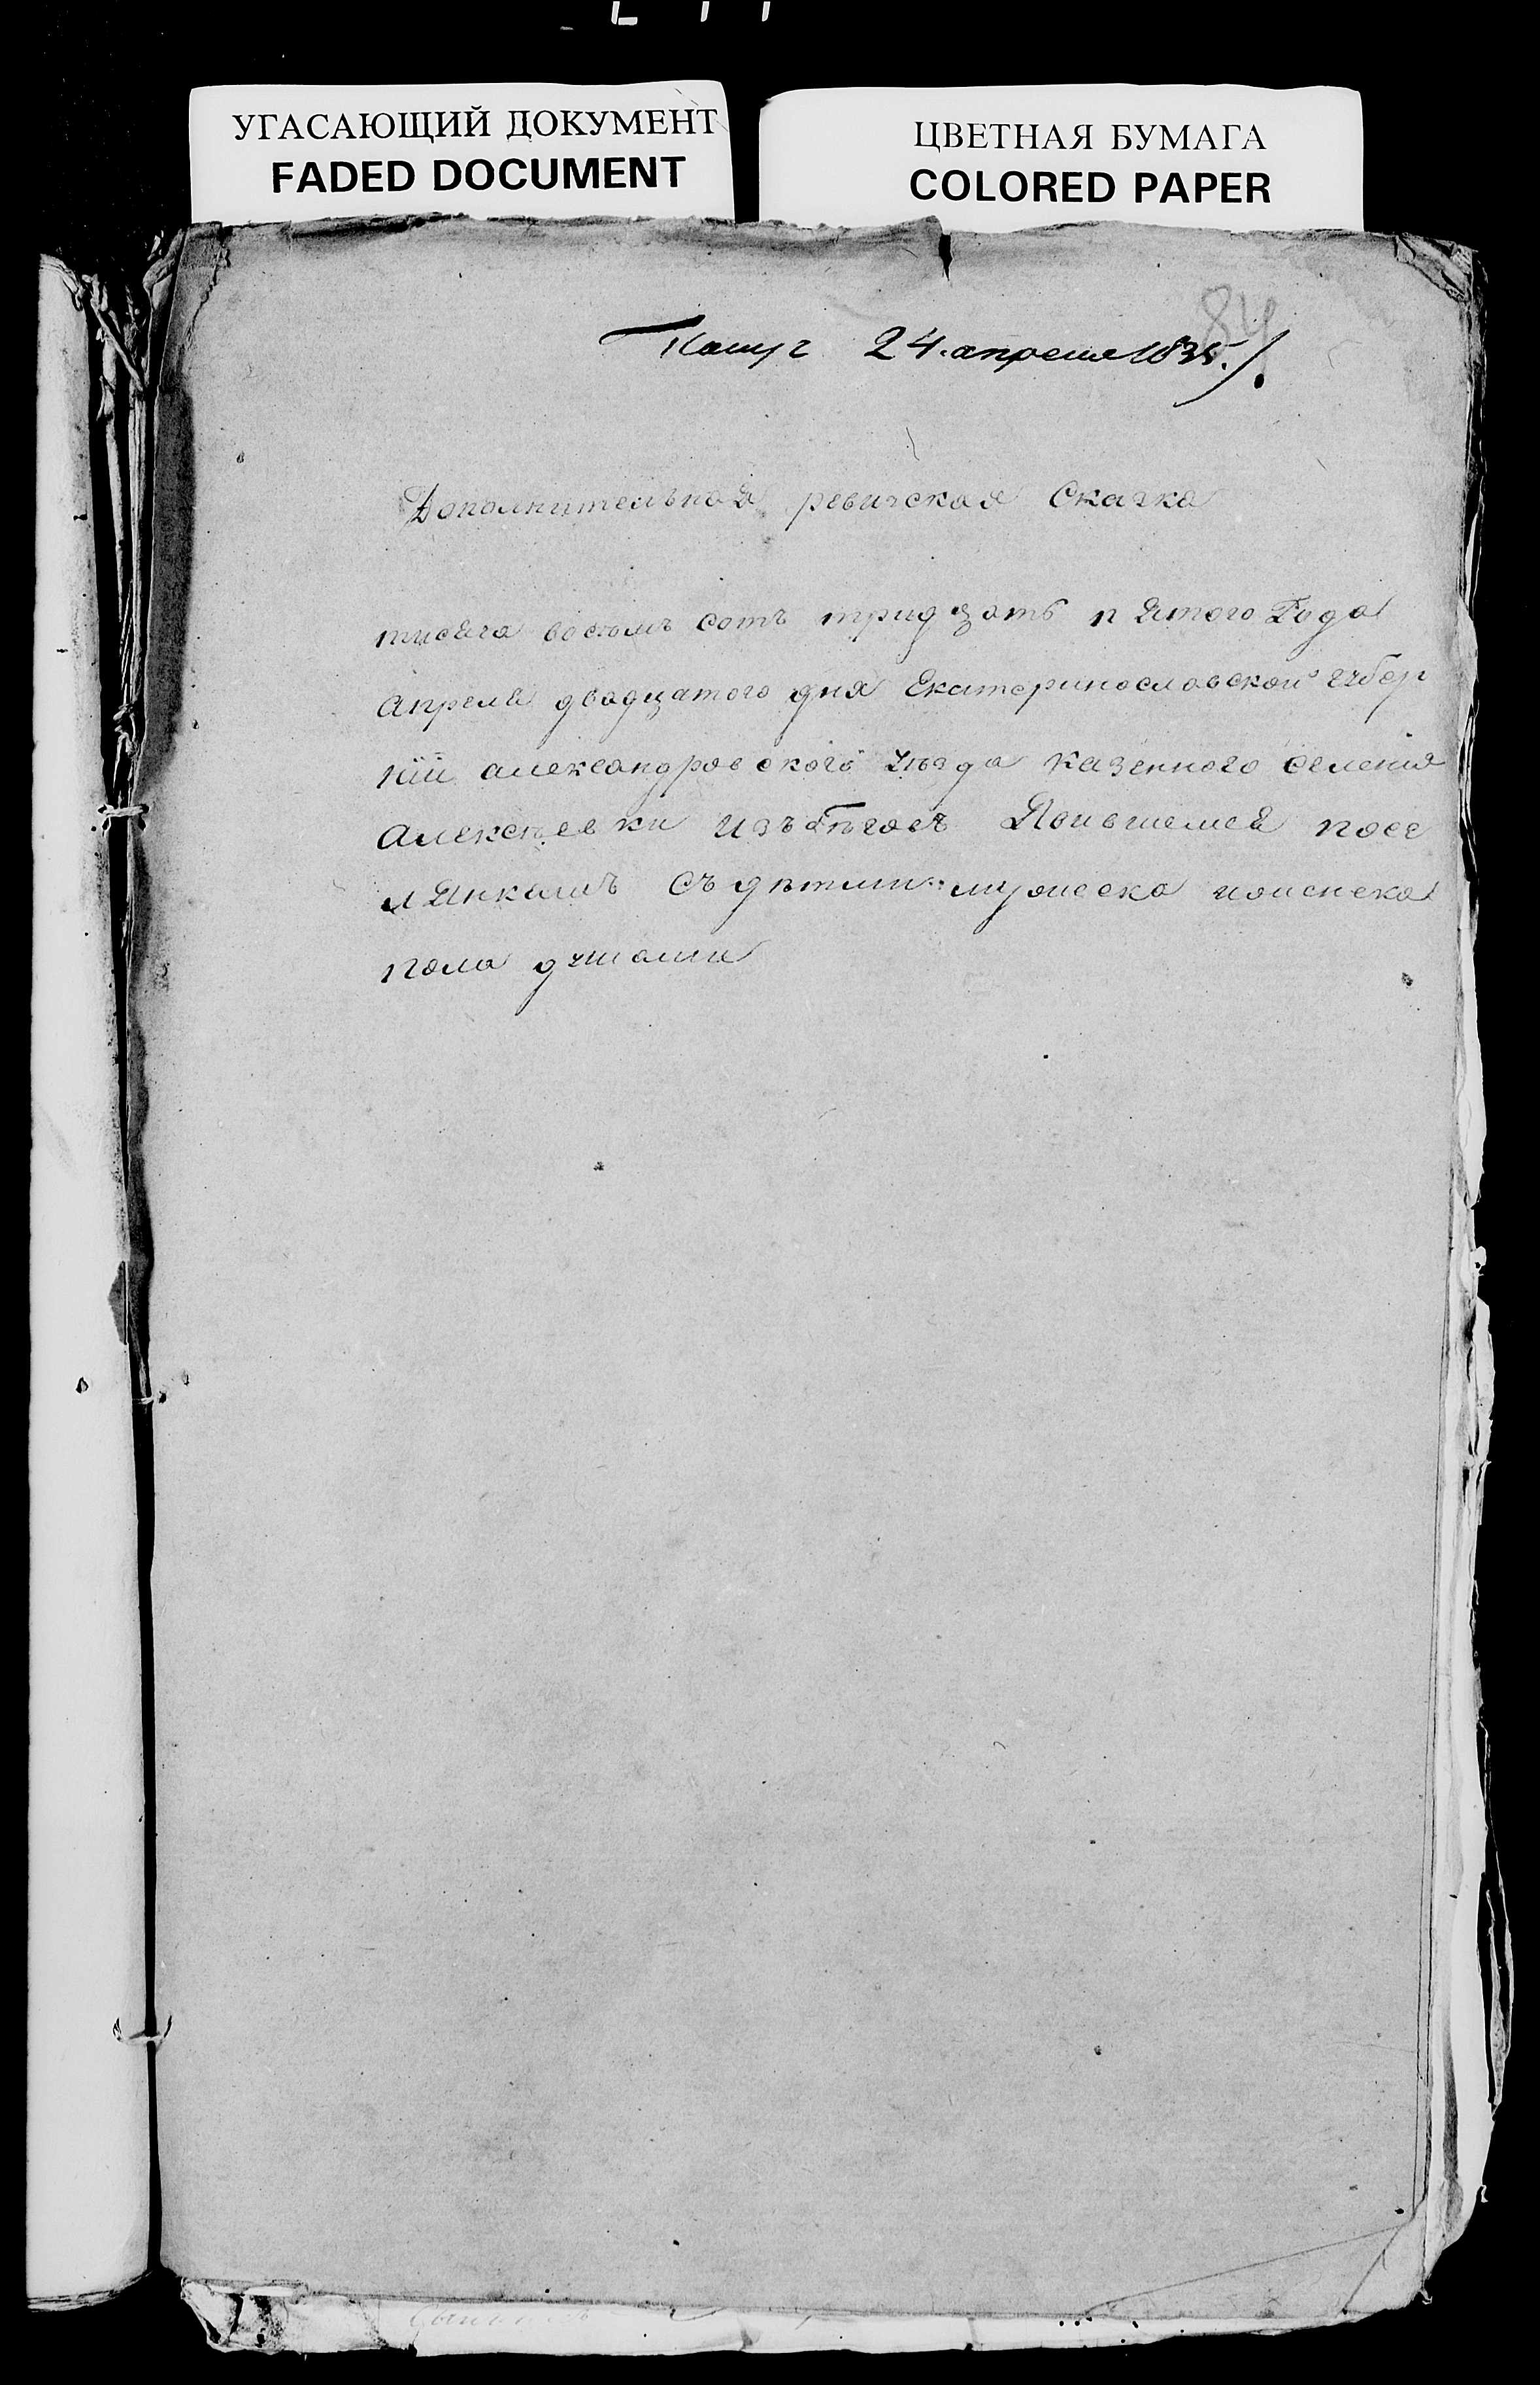 УГАСАЮЩИЙ ДОКУМЕНТ
FADED DOCUMENT
ЦВЕТНАЯ БУМАГА
COLORED PAPER
84
24. апреля 1835.
Дополнительная ревичская Сказка
тисяча восемъ сотъ тридцать пятого Года
апреля двадцатого дня Екатеринославской губер
нии александровского уезда казенного селения
алексѣевки изъ бѣговъ Явившемся посе
лянкамъ съ дѣтми мужеска
пола душами